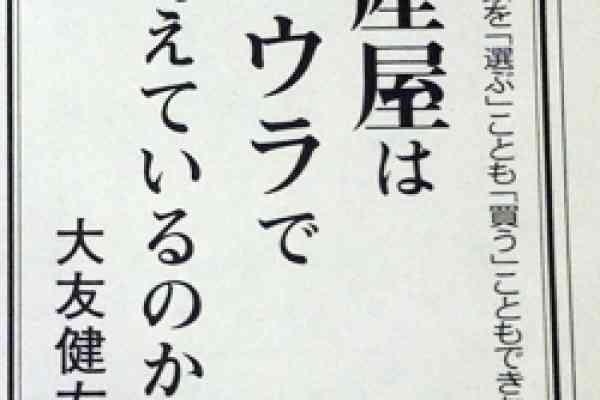 を「選ぶ」ことも「買う」こともでき
産屋は
ウラで
えているのか
大友健